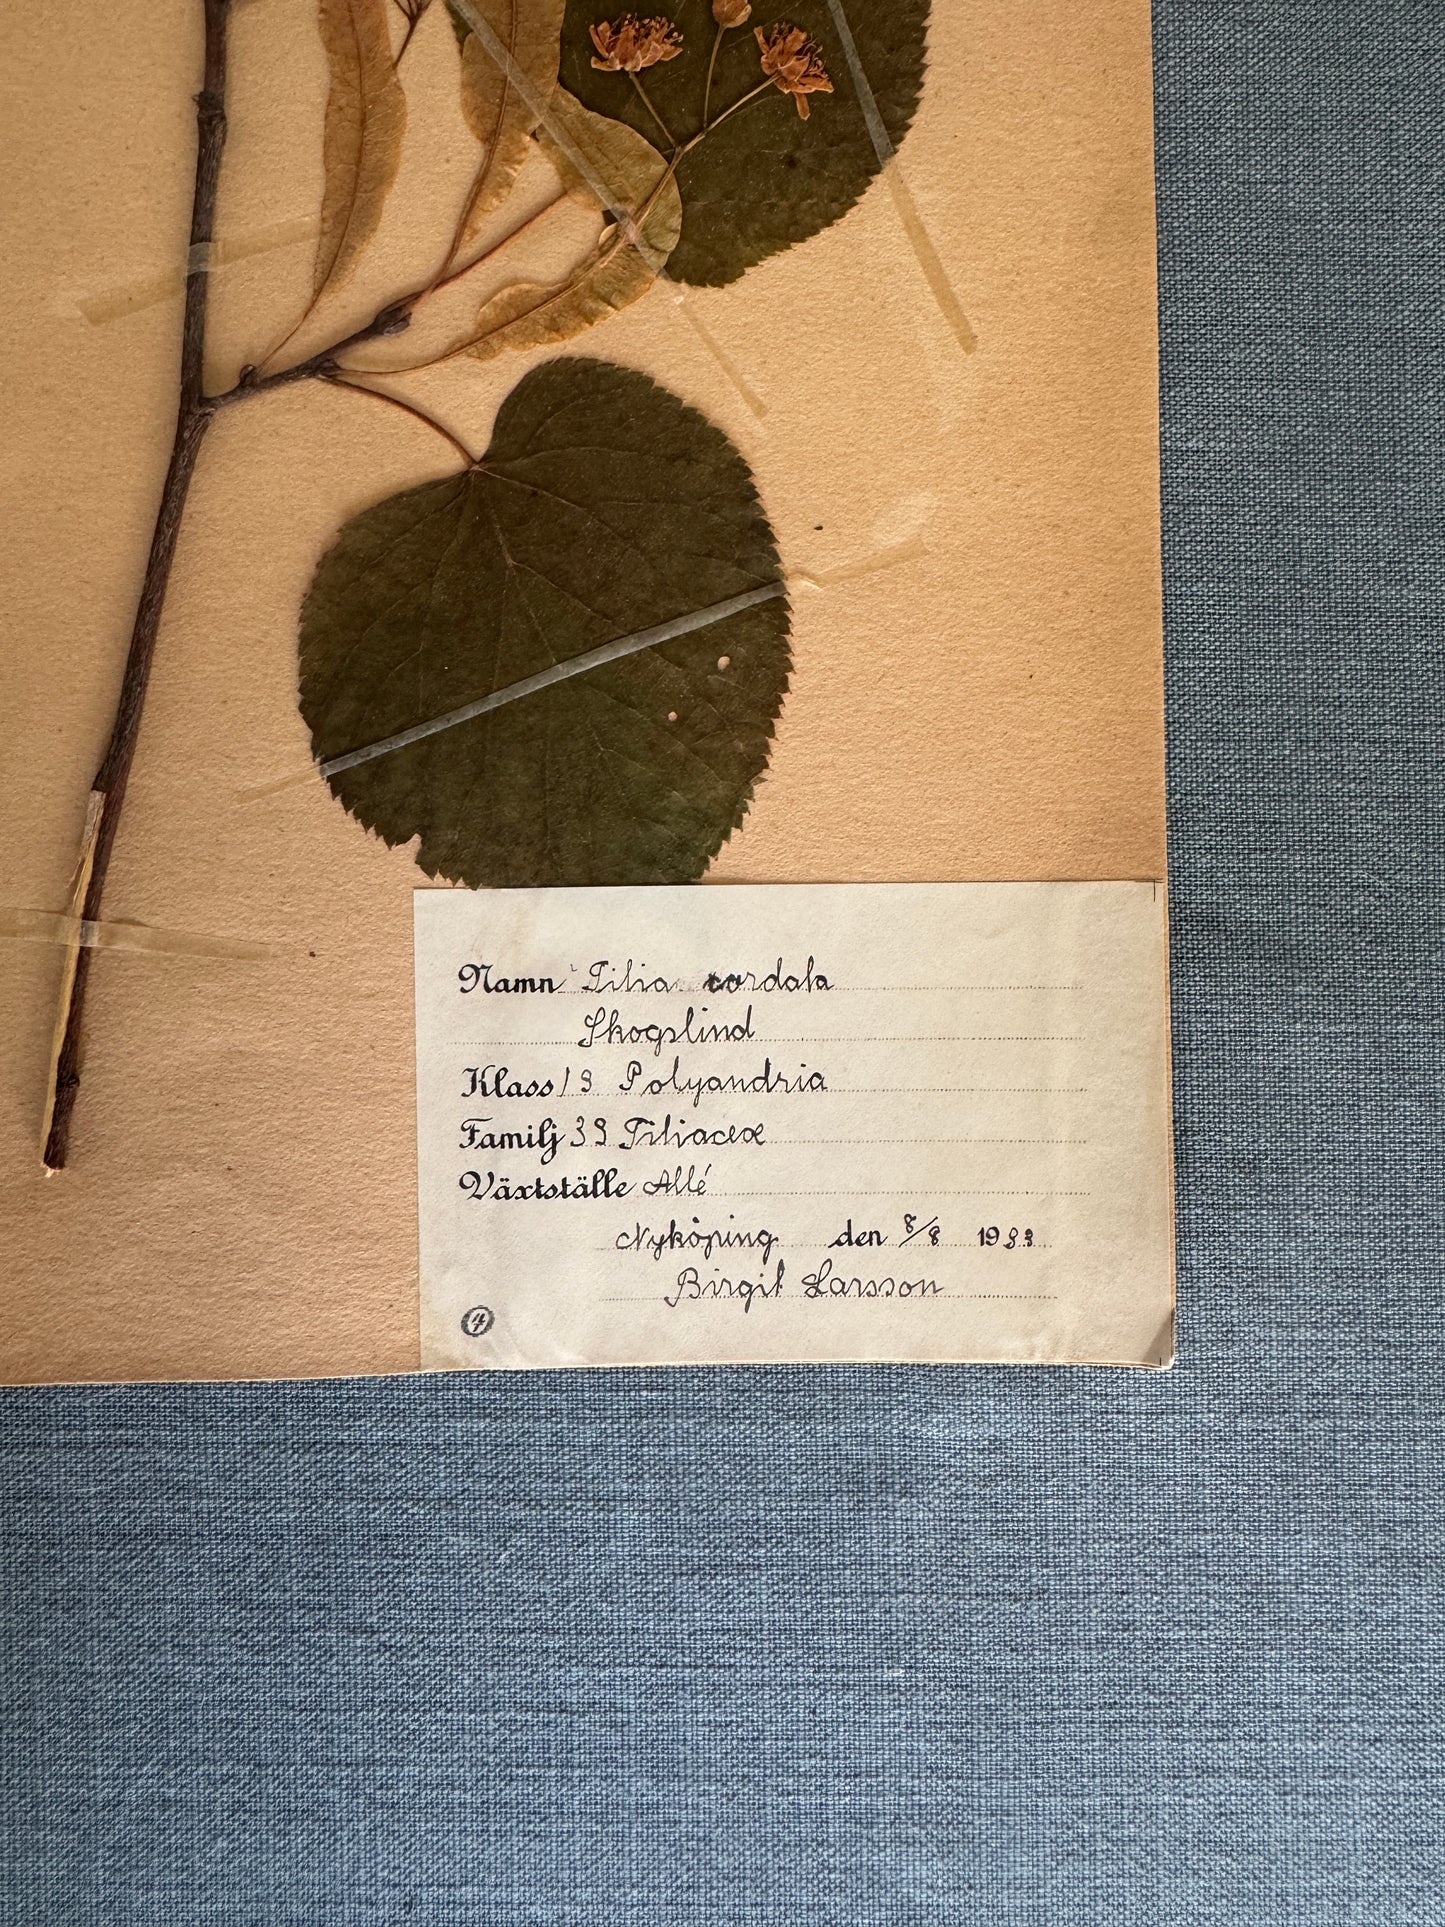 Namn Tilia cordata
Skogslind
Klass 13 Polyandria
Familj 33 Tiliaceæ
Växtställe Allé
Nyköping den 8/8 1933
Birgit Larsson
4